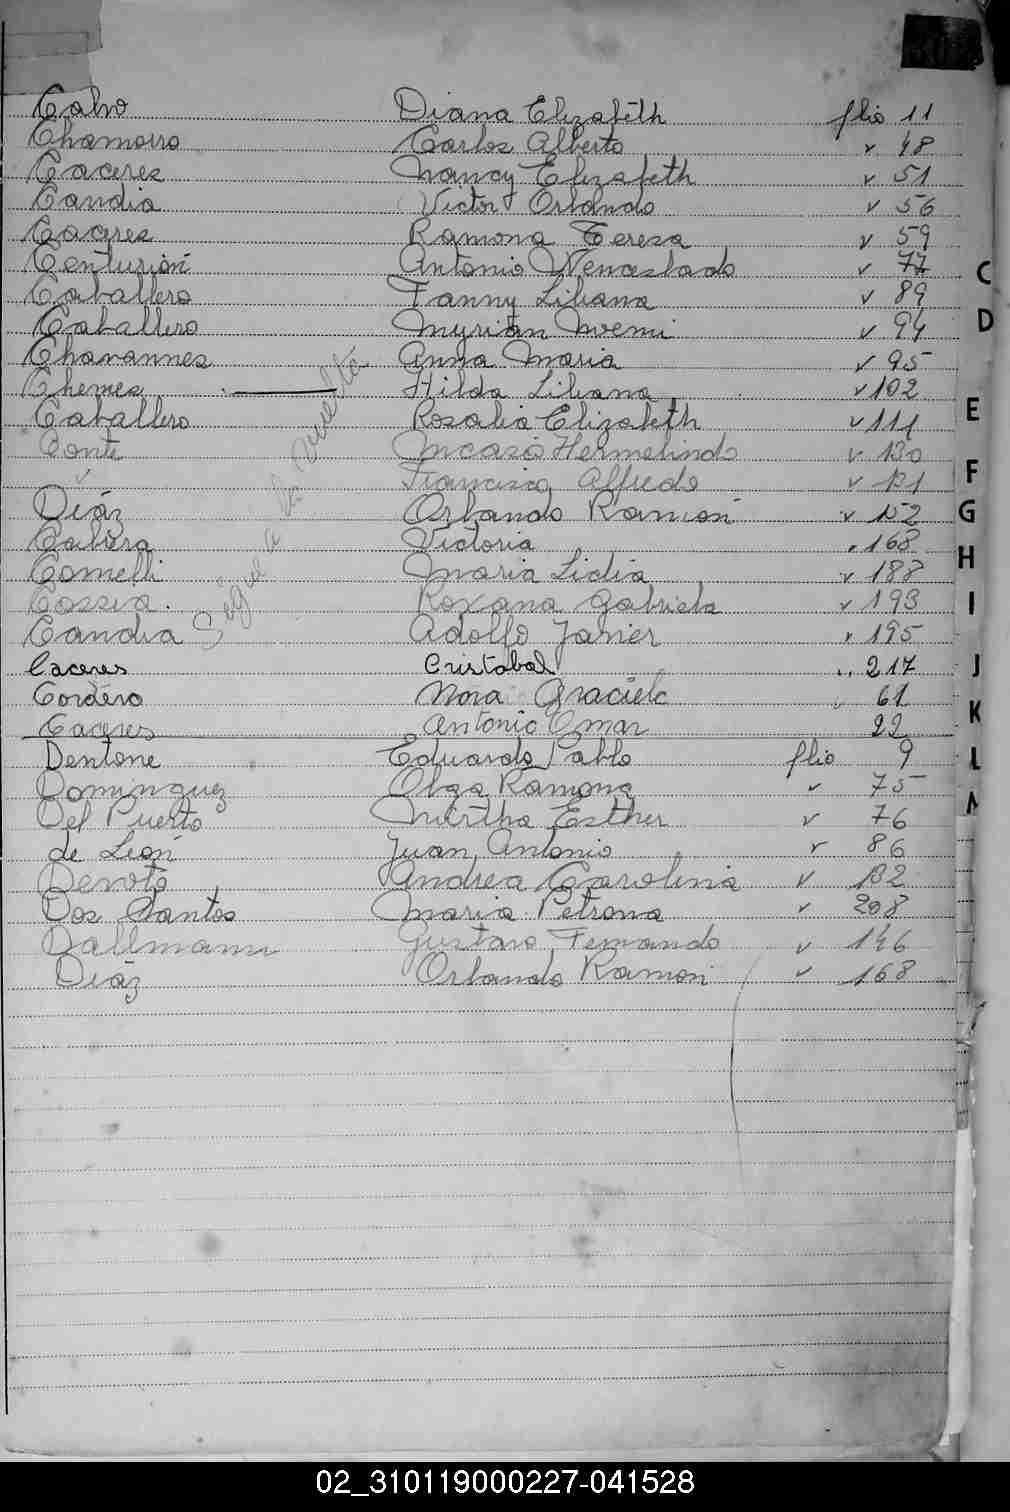 Calvo Diana Elizabeth flio 11
Chamorro Carlos Alberto " 48
Caceres Nancy Elizabeth " 51
Candia Victor Orlando " 56
Caceres Ramona Teresa " 59
Centurión Antonio Wenceslado " 77
Caballero Fanny Liliana " 89
Caballero Myrian Noemi " 94
Chavannes Anna Maria " 95
Chemes Hilda Liliana " 102
Caballero Rosalia Elizabeth " 111
Conte Nicasio Hermelindo " 130
" Francisco Alfredo " 131
Diáz Orlando Ramón " 152
Cabrera Victoria " 168
Comelli Maria Lidia " 188
Cossia. Roxana Gabriela " 193
Candia Adolfo Javier " 195
Caceres Cristobal " 217
Cordero Nora Graciela 61
Caceres Antonio Omar 22
Sigue a la vuelta
Dentone Eduardo Pablo flio 9
Dominguez Olga Ramona " 75
Del Puerto Mirtha Esther " 76
de León Juan Antonio " 86
Devoto Andrea Carolina " 132
Dos Santos Maria Petrona " 208
Dallmann Gustavo Fernando " 146
Diáz Orlando Ramon " 168
C
D
E
F
G
H
I
J
K
L
M
02_310119000227-041528